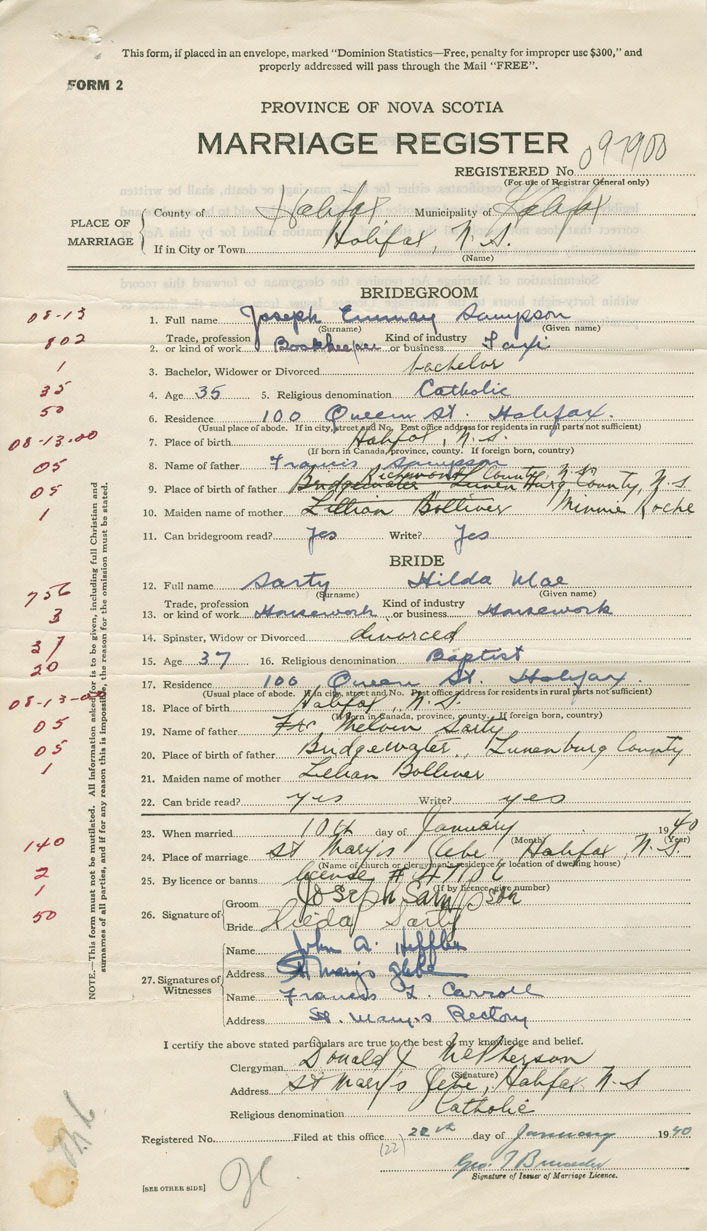 This form, if placed in an envelope, marked "Dominion Statistics—Free, penalty for improper use $300," and
properly addressed will pass through the Mail "FREE".
FORM 2
PROVINCE OF NOVA SCOTIA
MARRIAGE REGISTER
REGISTERED No. 097900
(For use of Registrar General only)
PLACE OF MARRIAGE
County of Halifax Municipality of Halifax
If in City or Town Halifax, N.S.
(Name)
BRIDEGROOM
08-13
1. Full name Joseph Emmary Sampson
(Surname) (Given name)
802
Trade, profession Kind of industry
2. or kind of work Bookkeeper or business Taxi
1
3. Bachelor, Widower or Divorced bachelor
35
4. Age 35 5. Religious denomination Catholic
50
6. Residence 100 Queen St. Halifax.
(Usual place of abode. If in city, street and No. Post office address for residents in rural parts not sufficient)
08-13.00
7. Place of birth Halifax, N.S.
(If born in Canada, province, county. If foreign born, country)
05
8. Name of father Francis Sampson
Richmond County, N.S.
05
9. Place of birth of father Bridgewater Lunenburg County, N.S
1
10. Maiden name of mother Lillian Bolliver Minnie Roche
11. Can bridegroom read? Yes Write? Yes
BRIDE
756
12. Full name Sarty Hilda Mae
(Surname) (Given name)
3
Trade, profession Kind of industry
13. or kind of work Housework or business Housework
14. Spinster, Widow or Divorced divorced
37
15. Age 37 16. Religious denomination Baptist
20
17. Residence 100 Queen St. Halifax.
(Usual place of abode. If in city, street and No. Post office address for residents in rural parts not sufficient)
08-13-00
18. Place of birth Halifax, N.S.
(If born in Canada, province, county. If foreign born, country)
05
19. Name of father Melvin Sarty
05
20. Place of birth of father Bridgewater, Lunenburg County
1
21. Maiden name of mother Lillian Bolliver
22. Can bride read? yes Write? yes
23. When married 10th day of January 1940
(Month) (Year)
140
24. Place of marriage St Mary's Glebe Halifax, N.S.
(Name of church or clergyman's residence or location of dwelling house)
2
25. By licence or banns license # 47106
(If by licence give number)
1
50
26. Signature of
Groom Joseph Sampson
Bride Hilda Sarty
27. Signatures of Witnesses
Name John A. Heffler
Address St Mary's Glebe
Name Francis L. Carroll
Address St. Mary's Rectory
I certify the above stated particulars are true to the best of my knowledge and belief.
Clergyman Donald McPherson
(Signature)
Address St Mary's Glebe, Halifax N.S
Religious denomination Catholic
Registered No. Filed at this office 22th day of January 1940
(22)
Signature of Issuer of Marriage Licence.
[SEE OTHER SIDE]
NOTE.—This form must not be mutilated. All information asked for is to be given, including full Christian and
surnames of all parties, and if for any reason this is impossible, the reason for the omission must be stated.